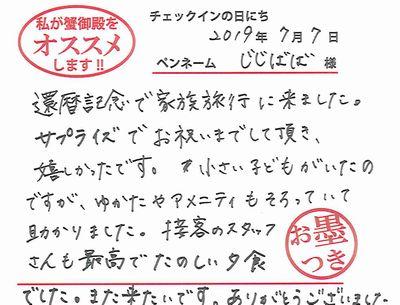 私が蟹御殿を
オススメ
します!!
チェックインの日にち
2019年7月7日
ペンネーム じじばば 様
還暦記念で家族旅行に来ました。
サプライズでお祝いまでして頂き、
嬉しかったです。 小さい子どもがいたの
ですが、ゆかたやアメニティもそろっていて
助かりました。接客のスタッフ
さんも最高でたのしい夕食
でした。また来たいです。ありがとうございました
お墨
つき